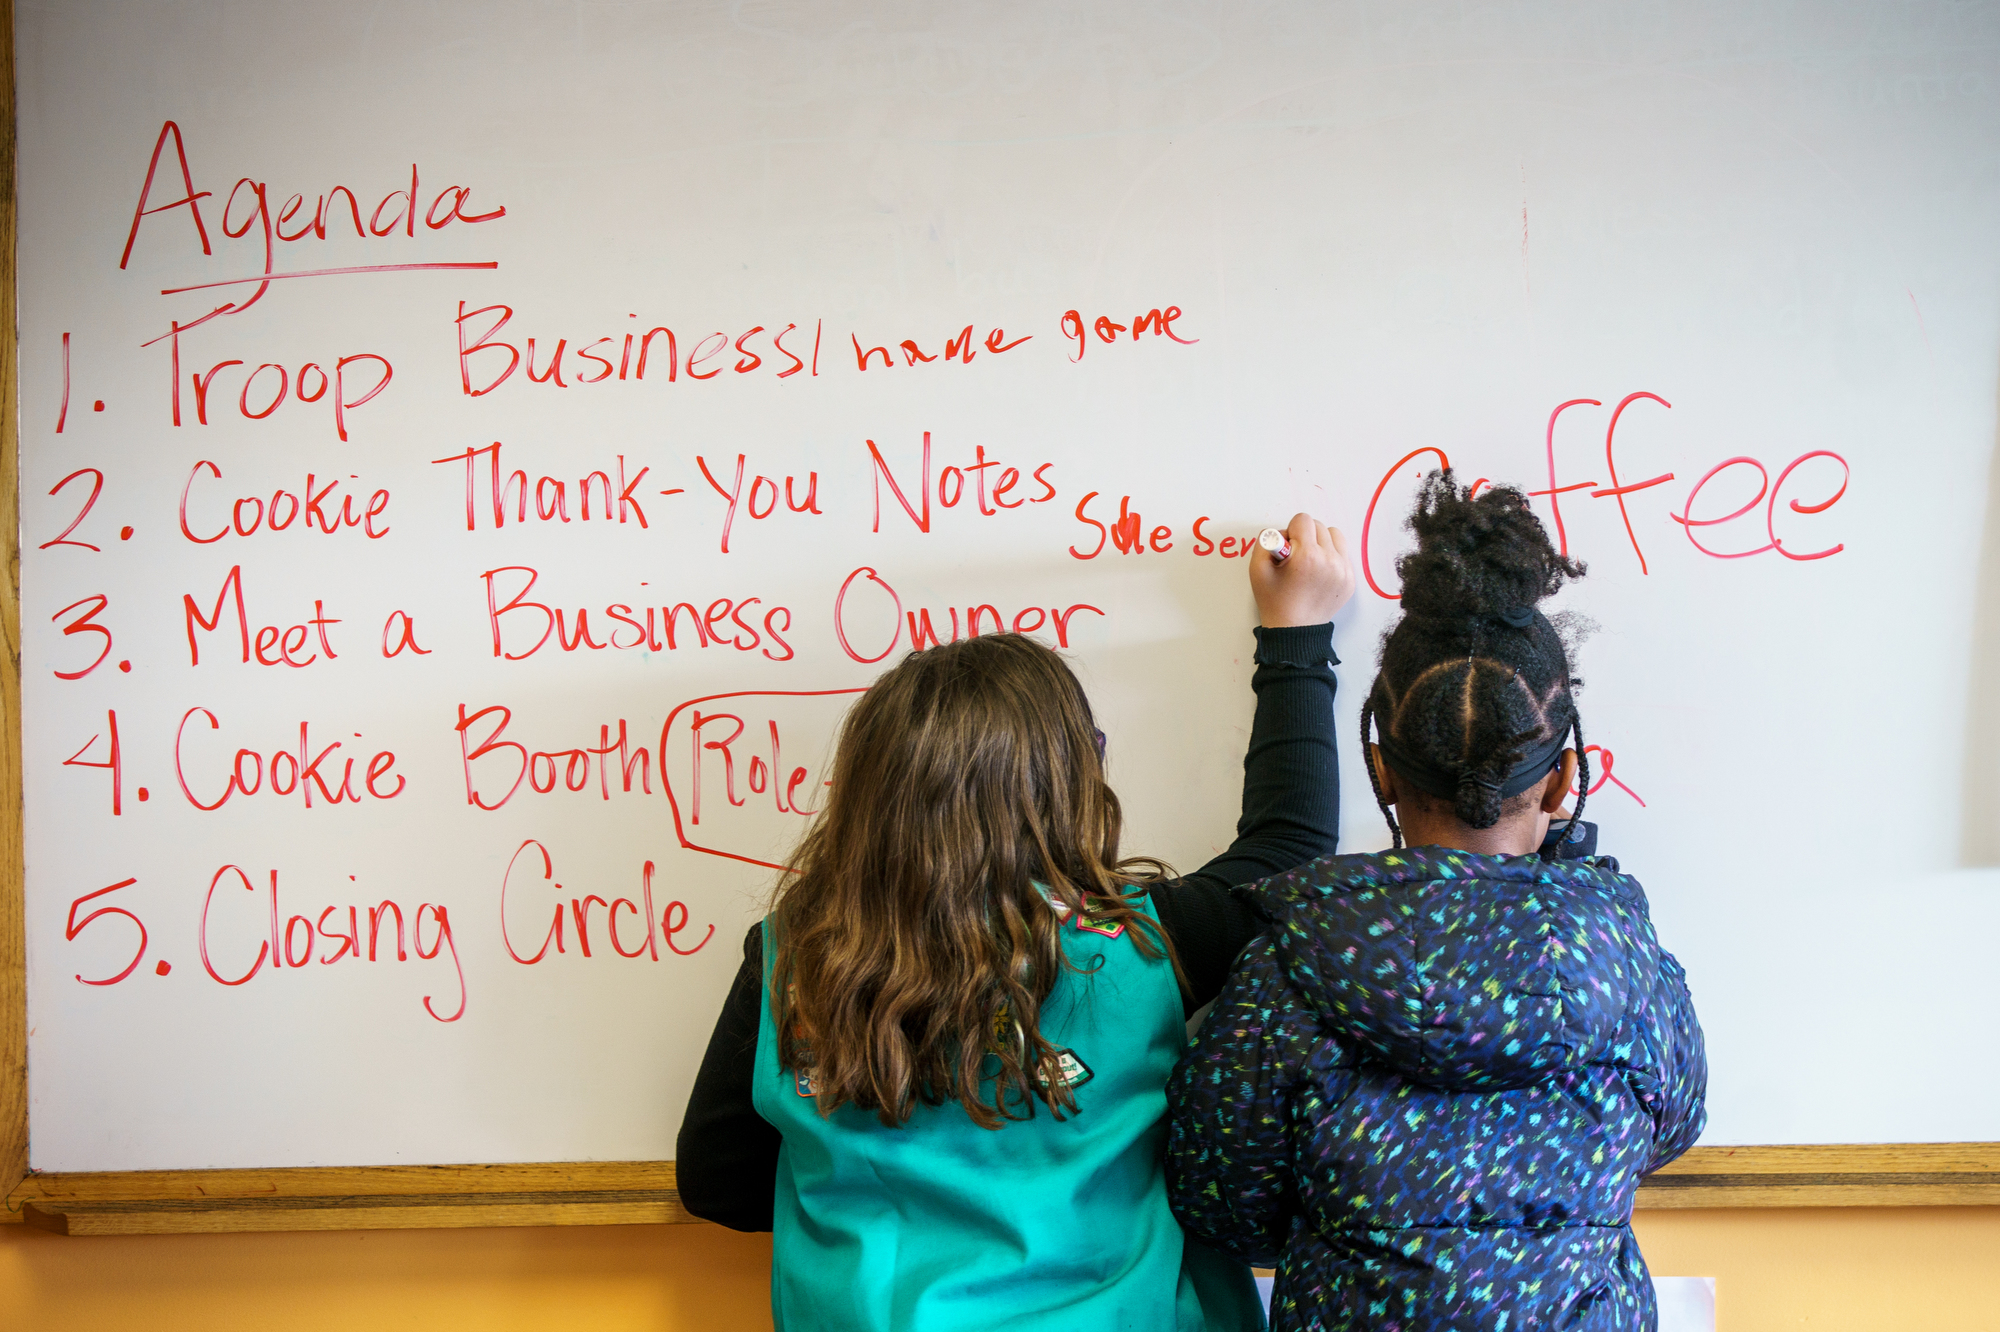 Agenda
1. Troop Business/ name game
2. Cookie Thank-You Notes
She Ser
Coffee
3. Meet a Business Owner
4. Cookie Booth (Role-
5. Closing Circle